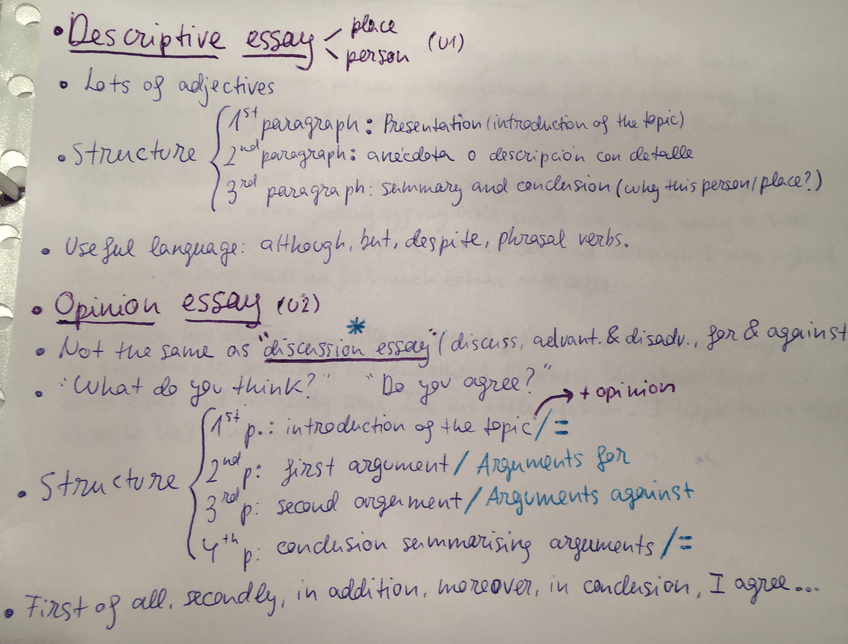 • Descriptive essay < place
person (U1)
• Lots of adjectives
• Structure { 1st paragraph: Presentation (introduction of the topic)
2nd paragraph: anécdota o descripción con detalle
3rd paragraph: summary and conclusion (why this person/place?)
• Useful language: although, but, despite, phrasal verbs.
• Opinion essay (U2)
• Not the same as "discussion essay"* (discuss, advant. & disadv., for & against
• "What do you think?" "Do you agree?"
→ + opinion
• Structure { 1st p.: introduction of the topic / =
2nd p: first argument / Arguments for
3rd p: second argument / Arguments against
4th p: conclusion summarising arguments / =
• First of all, secondly, in addition, moreover, in conclusion, I agree...